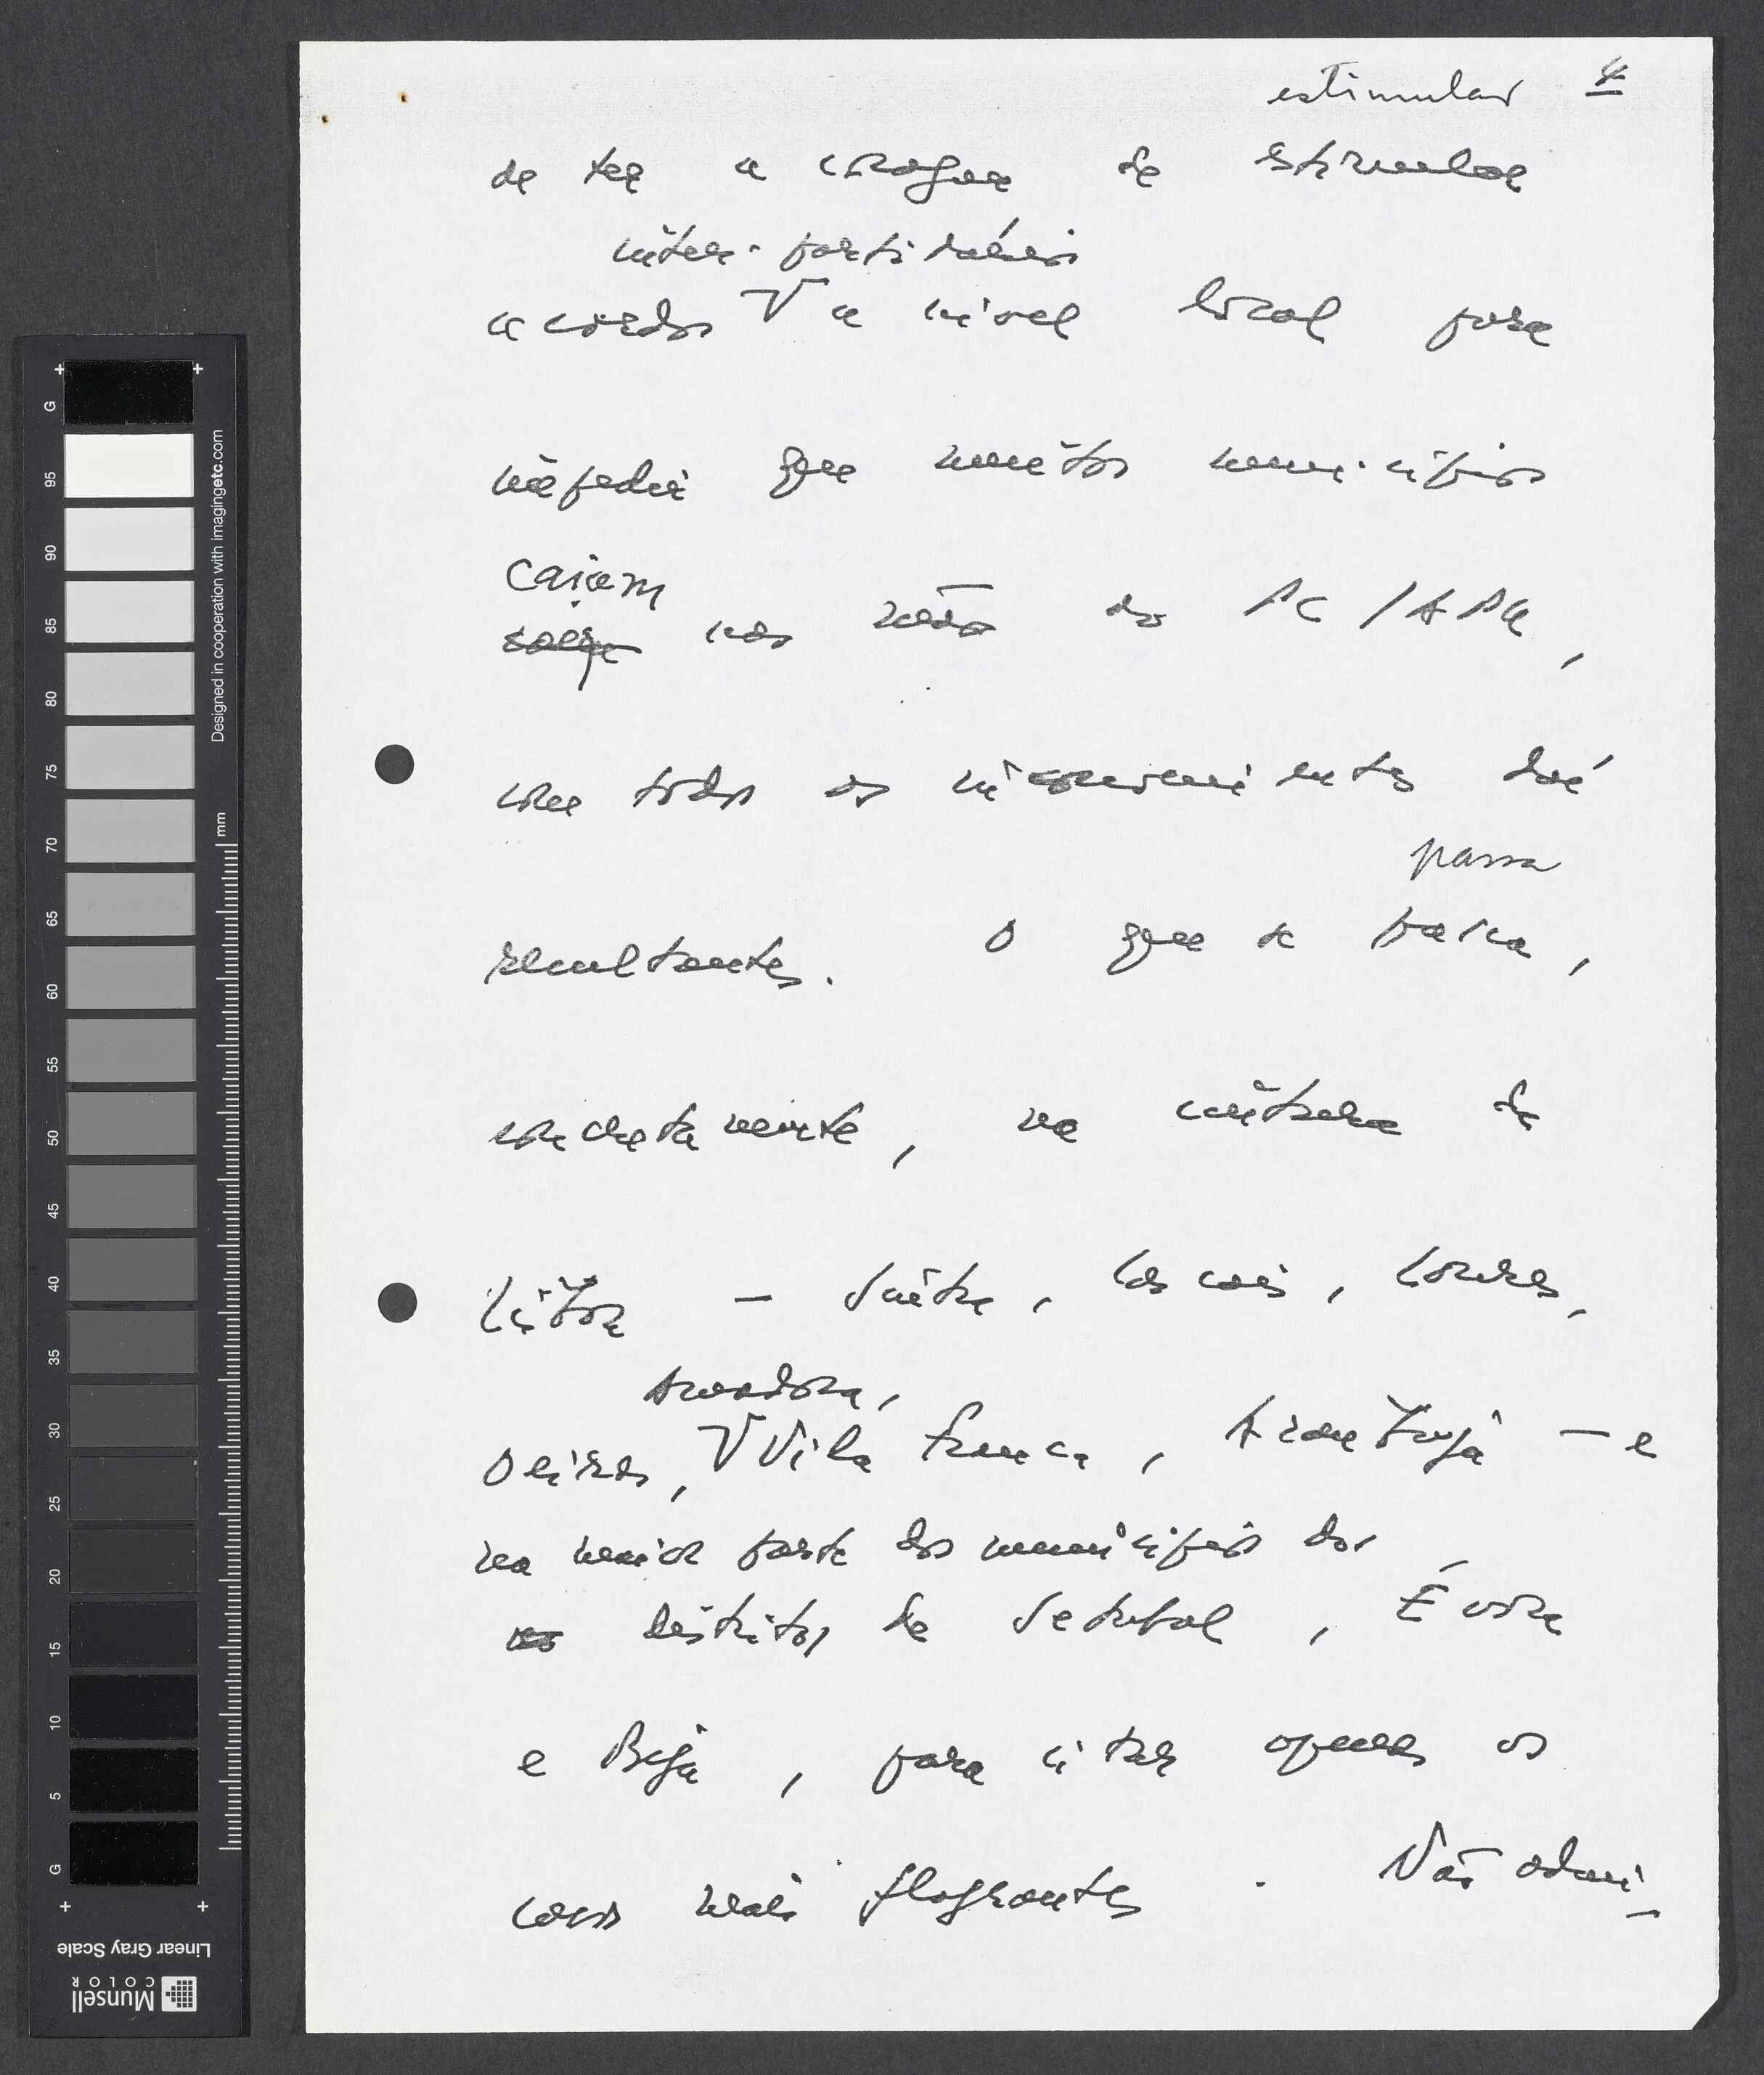 estimular 4
de ter a coragem de estimular
inter-partidários
acordos V a nível local para
impedir que muitos municípios
caiam
nas mãos do PC/APU,
com todos os inconvenientes daí
passa
resultantes. O que se passa,
concretamente, na cintura de
Lisboa — Sintra, Cascais, Loures,
Amadora,
Oeiras, V Vila Franca, Azambuja — e
na maior parte dos municípios dos
distritos de Setubal, Évora
e Beja, para citar apenas os
casos mais flagrantes. Não admi-
G 95 90 85 80 75 70 65 60 55 50 45 40 35 30 25 20 15 10 5 G
mm
Designed in cooperation with imagingetc.com
Linear Gray Scale
Munsell
COLOR